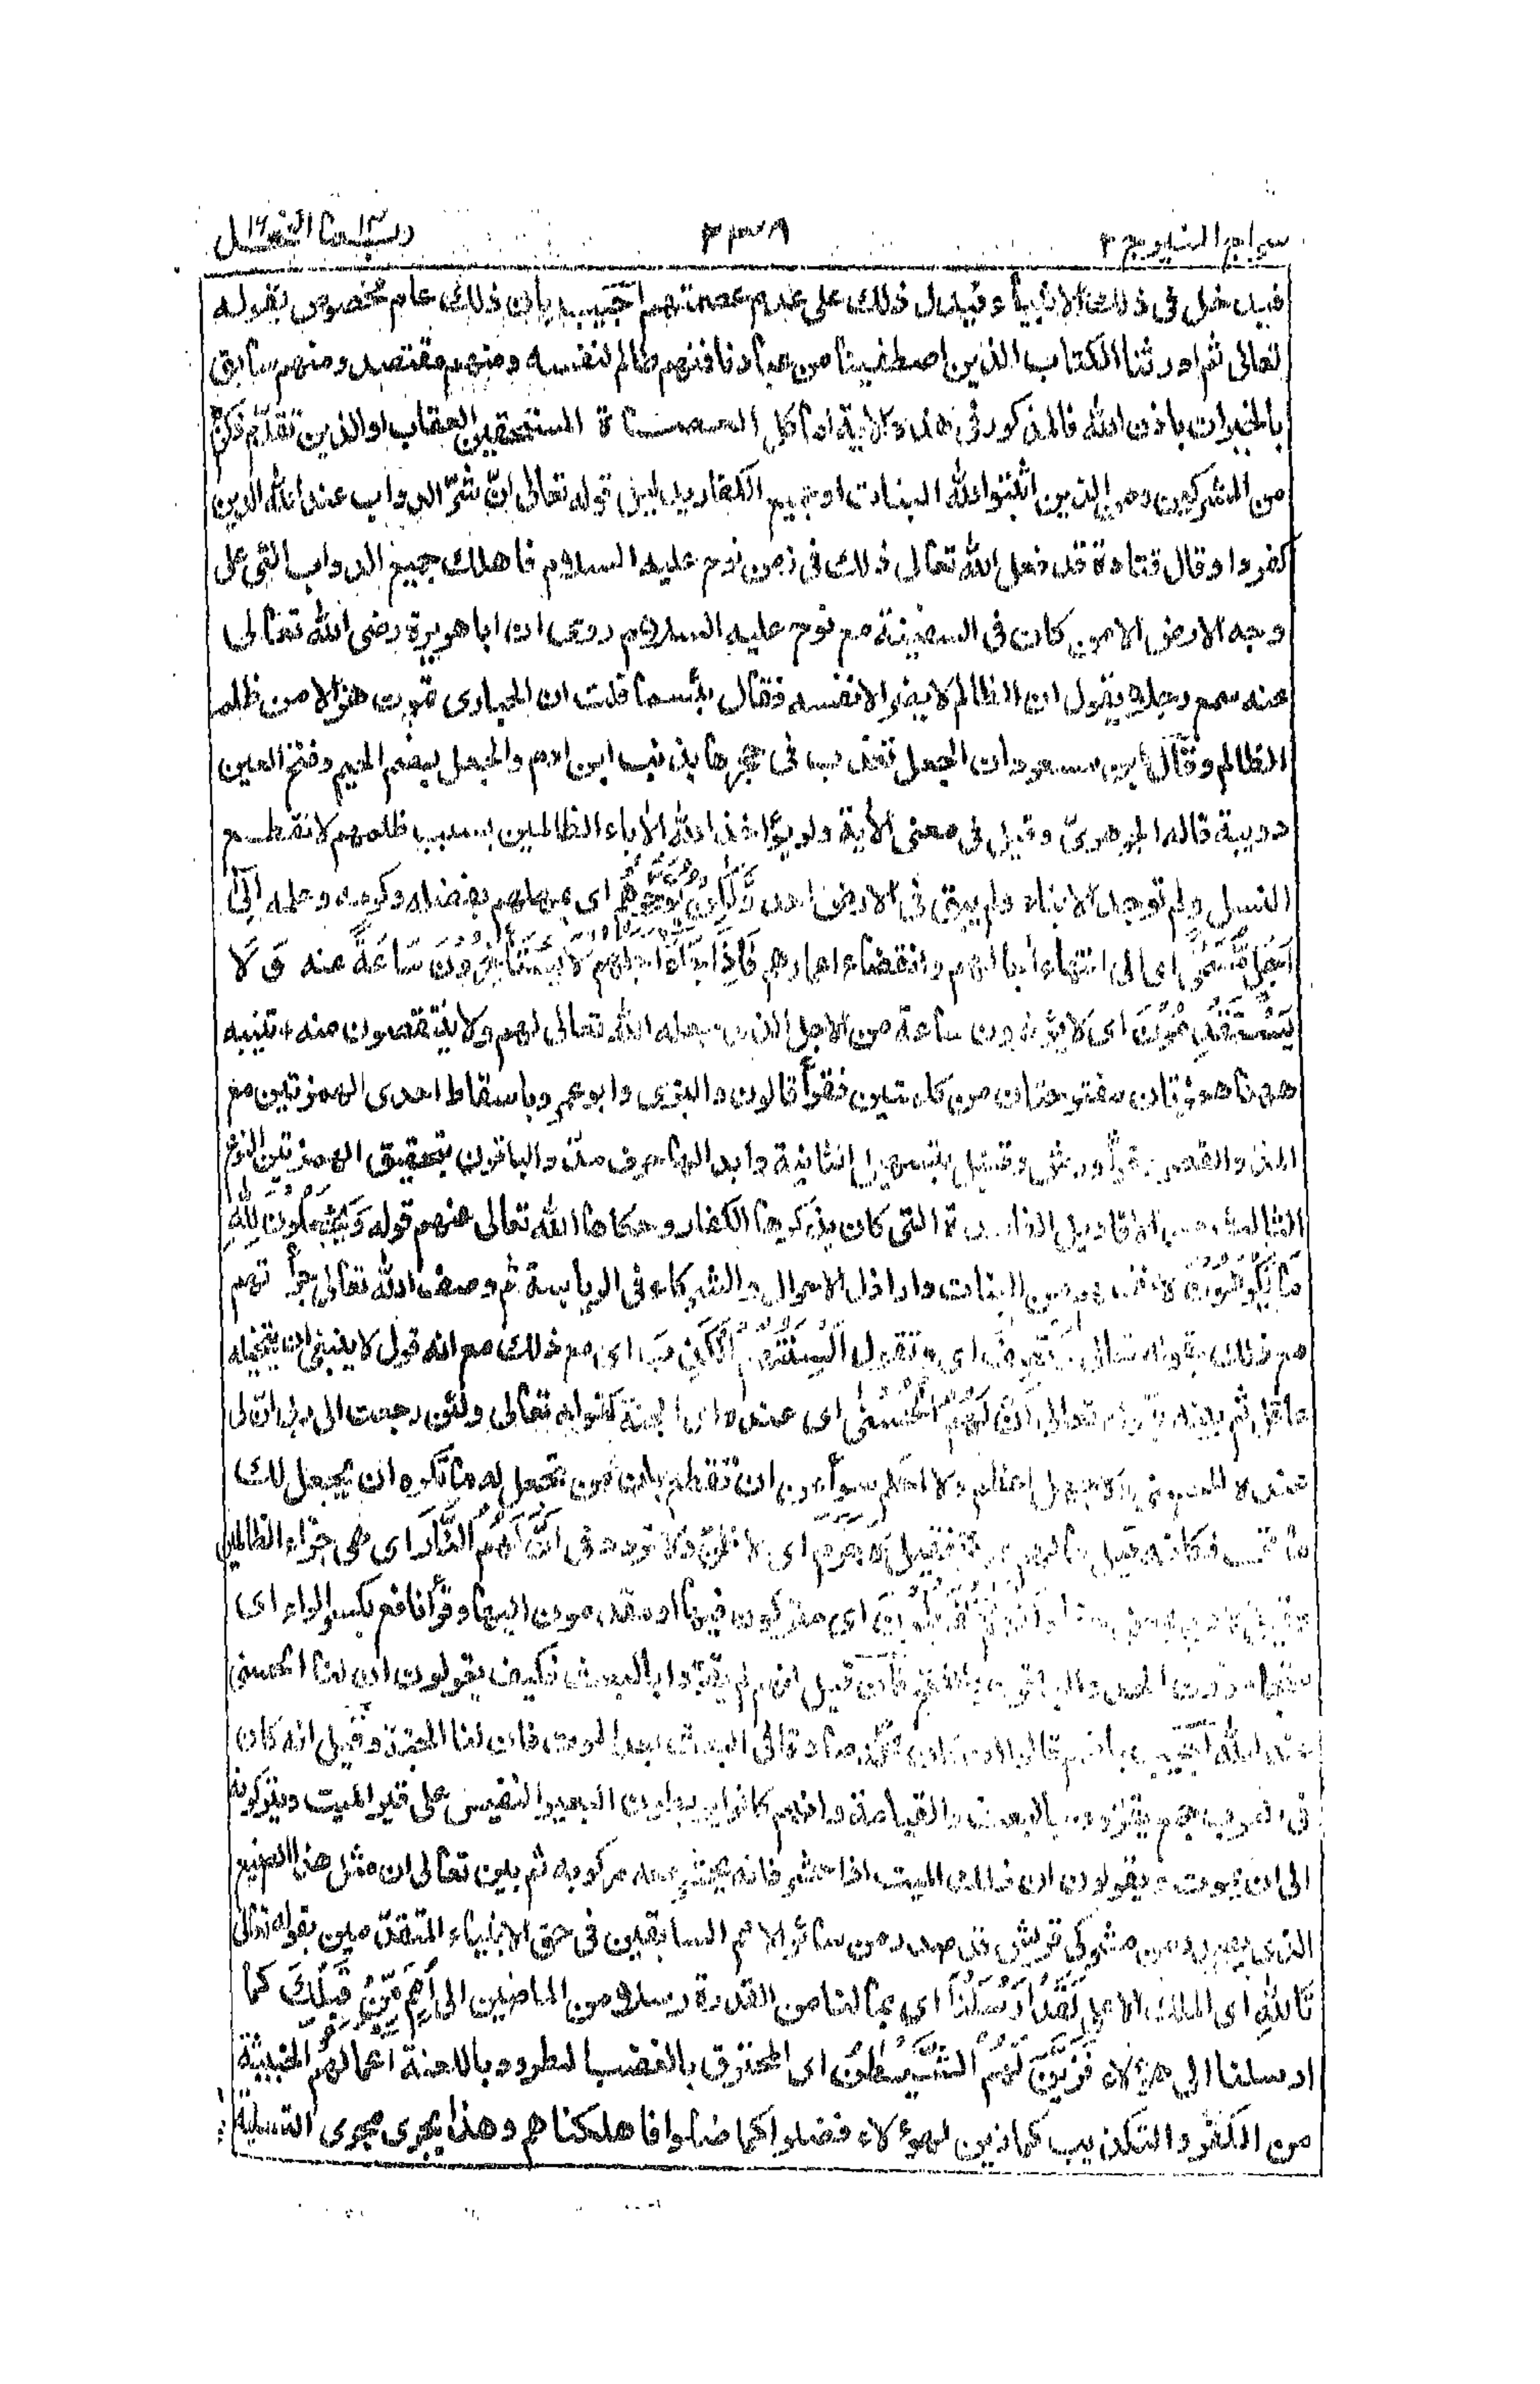 سراج المنير ج ٢ ٢٣٨ ربما ١٤ النحل ١٦
فيدخل في ذلك الانبياء وفيدل ذلك على عدم عصمتهم اجيب بان ذلك عام مخصوص بقوله
تعالى ثم اورثنا الكتاب الذين اصطفينا من عبادنا فمنهم ظالم لنفسه ومنهم مقتصد ومنهم سابق
بالخيرات باذن الله فالمذكور في هذه الاية اما كل العصاة المستحقين العقاب او الذين تقدم ذكرهم
من المشركين ومن الذين اثبتوا لله البنات او جميع الكفار بدليل قوله تعالى انّ شرّ الدواب عند الله الذين
كفروا وقال قتادة قد فعل الله تعالى ذلك في زمن نوح عليه السلام فاهلك جميع الدواب التي على
وجه الارض الا من كان في السفينة مع نوح عليه السلام روى ان ابا هريرة رضي الله تعالى
عنه سمع رجلا يقول ان الظالم لا يضر الا نفسه فقال بئسما قلت ان الحبارى تموت هزالا من ظلم
الظالم وقال ابن مسعود ان الجعل تعذب في حجرها بذنب ابن ادم والجعل بضم الجيم وفتح العين
دويبة قاله الجوهريّ وقيل في معنى الآية ولو يؤاخذ الله الاباء الظالمين بسبب ظلمهم لانقطع
النسل ولم توجد الابناء ولم يبق في الارض احد وَلٰكِنْ يُؤَخِّرُهُمْ اى يمهلهم بفضله وكرمه وحلمه اِلٰى
اَجَلٍ مُّسَمًّى اى الى انتهاء آجالهم وانقضاء اعمارهم فَاِذَا جَآءَ اَجَلُهُمْ لَا يَسْتَاْخِرُوْنَ سَاعَةً عنه وَّلَا
يَسْتَقْدِمُوْنَ اى لا يؤخرون ساعة من الاجل الذى جعله الله تعالى لهم ولا ينقصون منه، تنبيه
ههنا همزتان مفتوحتان من كلمتين فقرأ قالون والبزى وابو عمرو باسقاط احدى الهمزتين مع
المد والقصر وقرأ ورش وقنبل بتسهيل الثانية وابدالها حرف مد والباقون بتحقيق الهمزتين النوع
الثالث من الاقاويل الفاسدة التى كان يذكرها الكفار وحكاها الله تعالى عنهم قوله وَيَجْعَلُوْنَ لِلّٰهِ
مَا يَكْرَهُوْنَ لانفسهم من البنات واراذل الاموال والشركاء في الرياسة ثم وصف الله تعالى جرأتهم
مع ذلك بقوله تعالى وَتَصِفُ اى وتقول اَلْسِنَتُهُمُ الْكَذِبَ اى مع ذلك مع انه قول لا ينبغي ان يتخيله
عاقل ثم بينه بقوله تعالى اَنَّ لَهُمُ الْحُسْنٰى اى عنده اى الجنة كقوله تعالى ولئن رجعت الى ربى انّ لى
عنده للحسنى ولا جهل اعظم ولا احكم سوأ من ان تقطع بان من تجعل له ما تكره ان يجعل لك
ما تحب فكانه قيل ما لهم فقيل لَا جَرَمَ اى لا ظنّ ولا تردد في اَنَّ لَهُمُ النَّارَ اى هى جزاء الظالمين
وَاَنَّهُمْ مُّفْرَطُوْنَ اى متركون فيها او مقدمون اليها وقرأ نافع بكسر الراء اى
والباقون بالفتح فان قيل انهم لم يقرّوا بالبعث فكيف يقولون ان لنا الحسنى
عند الله اجيب بانهم قالوا ان كان محمد صادقا فى البعث بعد الموت فان لنا الجنة وقيل انه كان
فى العرب جمع يقرّون بالبعث والقيامة وانهم كانوا يربطون البعير النفيس على قبر الميت ويتركونه
الى ان يموت ويقولون ان ذلك الميت اذا حشر فانه يحشر معه مركوبه ثم بين تعالى ان مثل هذا الصنيع
الذى يصدر من مشركى قريش قد صدر من سائر الامم السابقين فى حق الانبياء المتقدّمين بقوله تعالى
تَاللّٰهِ اى الملك الاعلى لَقَدْ اَرْسَلْنَآ اى بما لنا من القدرة رسلا من الماضين اِلٰٓى اُمَمٍ مِّنْ قَبْلِكَ كما
ارسلنا الى هؤلاء فَزَيَّنَ لَهُمُ الشَّيْطٰنُ اى المحترق بالغضب المطرود باللعنة اَعْمَالَهُمْ الخبيثة
من الكفر والتكذيب كما زين لهؤلاء فضلوا كما ضلوا فاهلكناهم وهذا يجرى مجرى التسلية